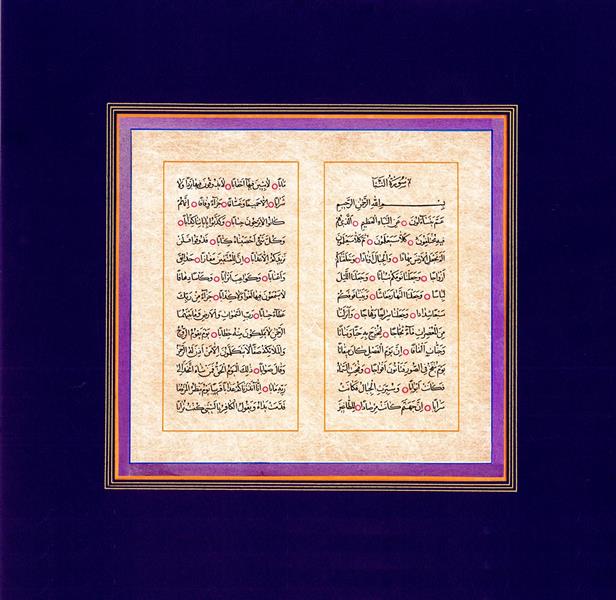 سُورَةُ النَّبَأِ
بِسْمِ اللهِ الرَّحْمٰنِ الرَّحِيمِ
عَمَّ يَتَسَاءَلُونَ عَنِ النَّبَإِ الْعَظِيمِ الَّذِي هُمْ
فِيهِ مُخْتَلِفُونَ كَلَّا سَيَعْلَمُونَ ثُمَّ كَلَّا سَيَعْلَمُونَ
أَلَمْ نَجْعَلِ الْأَرْضَ مِهَادًا وَالْجِبَالَ أَوْتَادًا وَخَلَقْنَاكُمْ
أَزْوَاجًا وَجَعَلْنَا نَوْمَكُمْ سُبَاتًا وَجَعَلْنَا اللَّيْلَ
لِبَاسًا وَجَعَلْنَا النَّهَارَ مَعَاشًا وَبَنَيْنَا فَوْقَكُمْ
سَبْعًا شِدَادًا وَجَعَلْنَا سِرَاجًا وَهَّاجًا وَأَنْزَلْنَا
مِنَ الْمُعْصِرَاتِ مَاءً ثَجَّاجًا لِنُخْرِجَ بِهِ حَبًّا وَنَبَاتًا
وَجَنَّاتٍ أَلْفَافًا إِنَّ يَوْمَ الْفَصْلِ كَانَ مِيقَاتًا
يَوْمَ يُنْفَخُ فِي الصُّورِ فَتَأْتُونَ أَفْوَاجًا وَفُتِحَتِ السَّمَاءُ
فَكَانَتْ أَبْوَابًا وَسُيِّرَتِ الْجِبَالُ فَكَانَتْ
سَرَابًا إِنَّ جَهَنَّمَ كَانَتْ مِرْصَادًا لِلطَّاغِينَ
مَآبًا لَابِثِينَ فِيهَا أَحْقَابًا لَا يَذُوقُونَ فِيهَا بَرْدًا وَلَا
شَرَابًا إِلَّا حَمِيمًا وَغَسَّاقًا جَزَاءً وِفَاقًا إِنَّهُمْ
كَانُوا لَا يَرْجُونَ حِسَابًا وَكَذَّبُوا بِآيَاتِنَا كِذَّابًا
وَكُلَّ شَيْءٍ أَحْصَيْنَاهُ كِتَابًا فَذُوقُوا فَلَنْ
نَزِيدَكُمْ إِلَّا عَذَابًا إِنَّ لِلْمُتَّقِينَ مَفَازًا حَدَائِقَ
وَأَعْنَابًا وَكَوَاعِبَ أَتْرَابًا وَكَأْسًا دِهَاقًا
لَا يَسْمَعُونَ فِيهَا لَغْوًا وَلَا كِذَّابًا جَزَاءً مِنْ رَبِّكَ
عَطَاءً حِسَابًا رَبِّ السَّمٰوَاتِ وَالْأَرْضِ وَمَا بَيْنَهُمَا
الرَّحْمٰنِ لَا يَمْلِكُونَ مِنْهُ خِطَابًا يَوْمَ يَقُومُ الرُّوحُ
وَالْمَلَائِكَةُ صَفًّا لَا يَتَكَلَّمُونَ إِلَّا مَنْ أَذِنَ لَهُ الرَّحْمٰنُ
وَقَالَ صَوَابًا ذٰلِكَ الْيَوْمُ الْحَقُّ فَمَنْ شَاءَ اتَّخَذَ إِلَى
رَبِّهِ مَآبًا إِنَّا أَنْذَرْنَاكُمْ عَذَابًا قَرِيبًا يَوْمَ يَنْظُرُ الْمَرْءُ مَا
قَدَّمَتْ يَدَاهُ وَيَقُولُ الْكَافِرُ يَا لَيْتَنِي كُنْتُ تُرَابًا